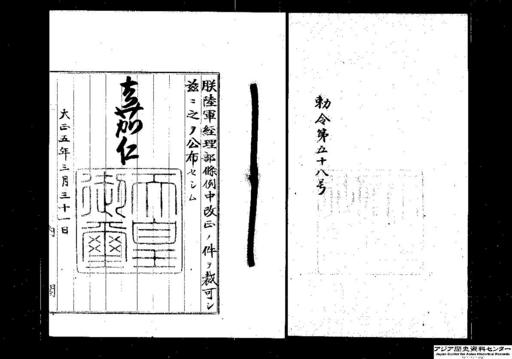 勅令第五十八号
朕陸軍経理部條例中改正ノ件ヲ裁可シ
茲ニ之ヲ公布セシム
嘉仁
天皇
御璽
大正五年三月三十一日
内閣
アジア歴史資料センター
Japan Center for Asian Historical Records